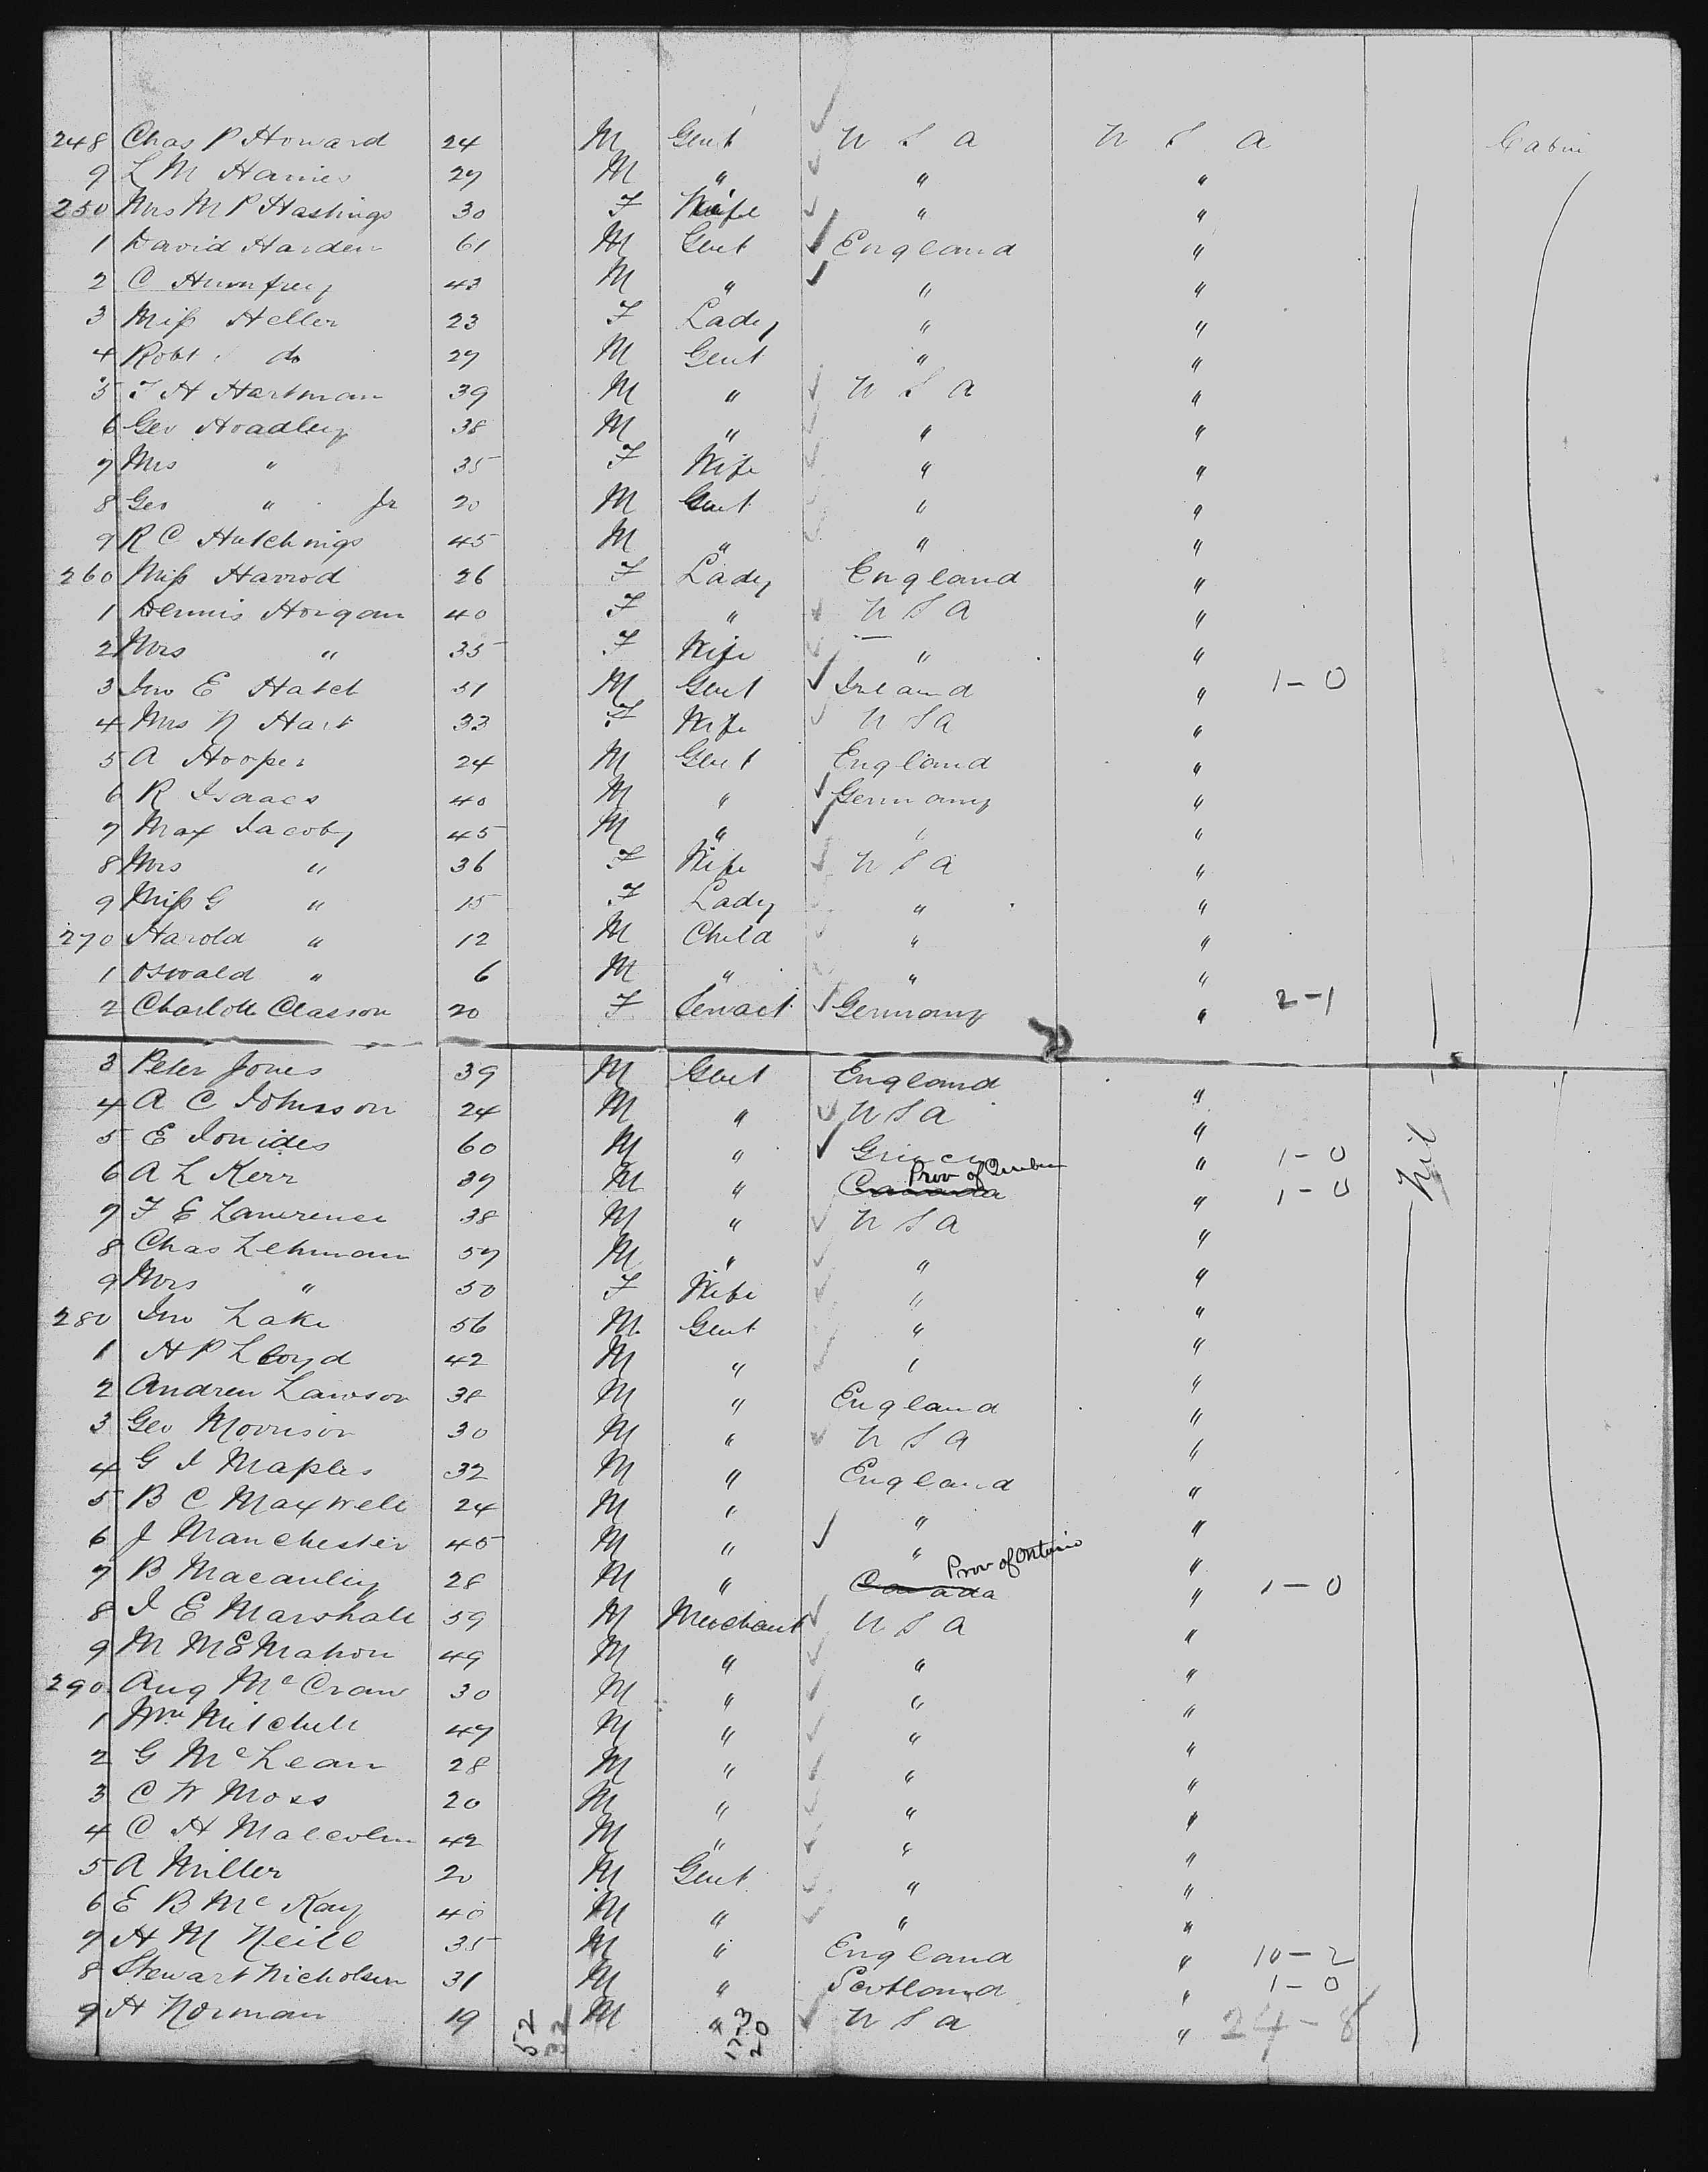 248 Chas P Howard 24 M Gent U S A U S A Cabin
9 L M Harries 27 M " " "
250 Mrs M P Hastings 30 F Wife " "
1 David Harden 61 M Gent England "
2 C Humfrey 43 M " " "
3 Miss Heller 23 F Lady " "
4 Robt do 27 M Gent " "
5 T H Hartman 39 M " U S A "
6 Geo Hoadley 38 M " " "
7 Mrs " 35 F Wife " "
8 Geo " Jr 20 M Gent " "
9 R C Hutchings 45 M " " "
260 Miss Harrod 26 F Lady England "
1 Dennis Horgan 40 F " U S A "
2 Mrs " 35 F Wife " "
3 Jno E Hatch 51 M Gent Ireland " 1-0
4 Mrs N Hart 33 F Wife U S A "
5 A Hooper 24 M Gent England "
6 R Isaacs 40 M " Germany "
7 Max Jacoby 45 M " " "
8 Mrs " 36 F Wife U S A "
9 Miss G " 15 F Lady " "
270 Harold " 12 M Child " "
1 Oswald " 6 M " " "
2 Charlotte Classon 20 F Servant Germany " 2-1
3 Peter Jones 39 M Gent England "
4 A C Johnson 24 M " U S A "
5 E Ionides 60 M " Greece " 1-0 Nil
6 A L Kerr 39 M " Canada Prov of Quebec " 1-0
7 F E Lawrence 38 M " U S A "
8 Chas Lehman 57 M " " "
9 Mrs " 50 F Wife " "
280 Jno Lake 56 M Gent " "
1 H P Lloyd 42 M " " "
2 Andrew Lawson 38 M " England "
3 Geo Morrison 30 M " U S A "
4 G J Maples 32 M " England "
5 B C Maxwell 24 M " " "
6 J Manchester 45 M " " "
7 B Macauley 28 M " Canada Prov of Ontario " 1-0
8 J E Marshall 59 M Merchant U S A "
9 M McMahon 49 M " " "
290 Aug McCraw 30 M " " "
1 Wm Mitchell 47 M " " "
2 G McLean 28 M " " "
3 C W Moss 20 M " " "
4 C H Malcolm 42 M " " "
5 A Miller 20 M Gent " "
6 E B McKay 40 M " " "
7 H M Neill 35 M " England " 10-2
8 Stewart Nicholson 31 M " Scotland " 1-0
9 H Norman 19 M " U S A " 24-8
52
32
173
20